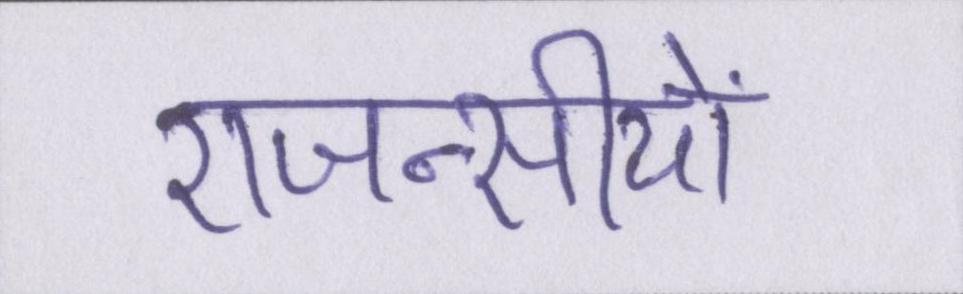 एजन्सीयों